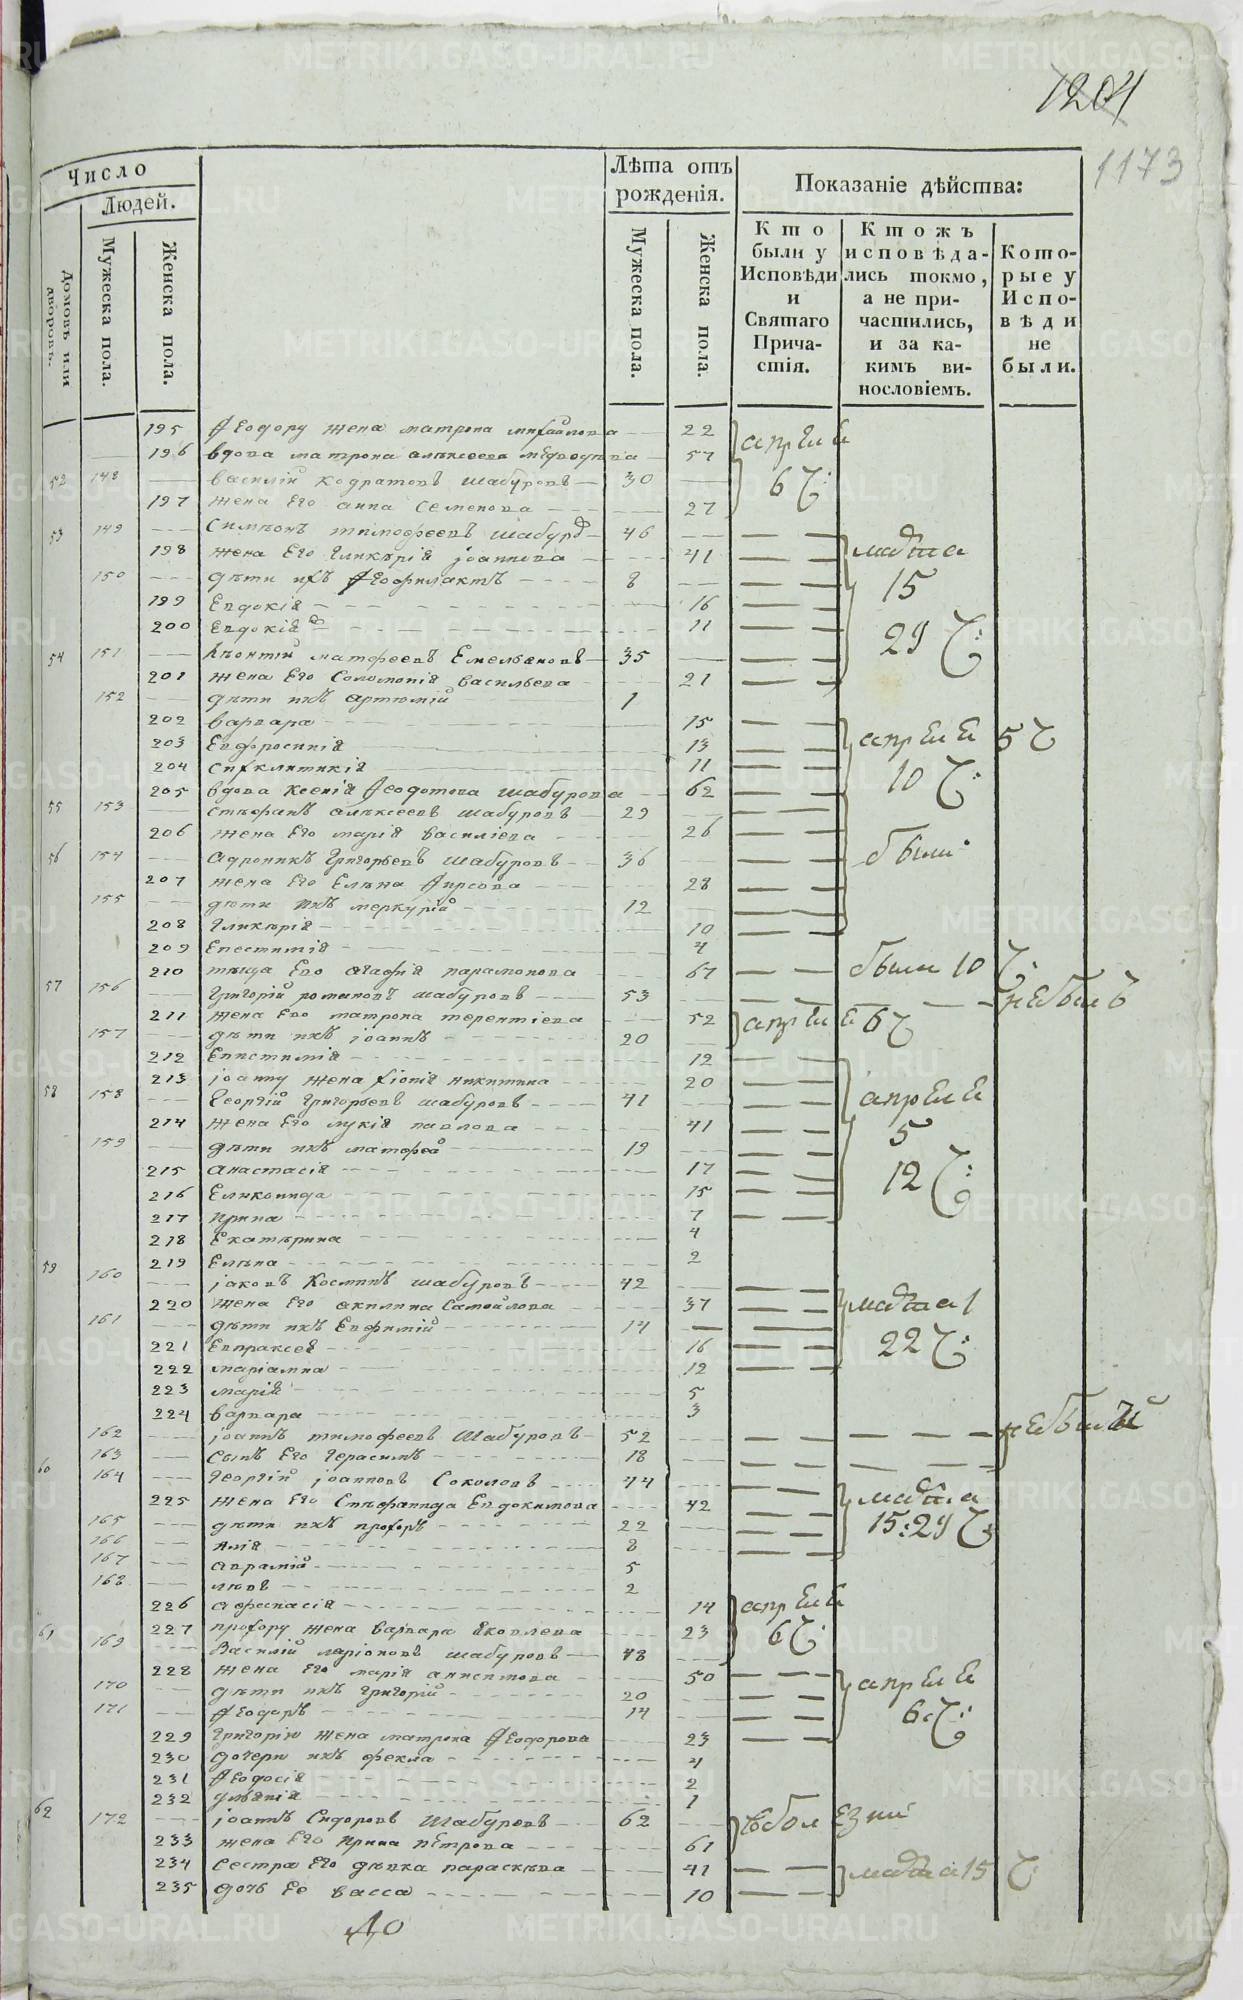 1204
1173
Число
Людей.
Домовъ или дворовъ.
Мужеска пола.
Женска пола.
Лѣта отъ рожденія.
Мужеска пола.
Женска пола.
Показаніе дѣйства:
Кто были у Исповѣди и Святаго Причастія.
Ктожъ исповѣдались токмо, а не причастились, и за какимъ винословіемъ.
Которые у Исповѣди не были.
195 Ѳеодору жена матрона михайлова 22 апреля
196 вдова матрона алексеева 57
52 148 василій кодратовъ шабуровъ 30 6 ч:
197 жена Его анна Семенова 27
53 149 Симеонъ тимофеевъ шабуро 46
198 жена Его Гликерія іоаннова 41 марта
150 дѣти ихъ Ѳеофилактъ 8 15
199 Евдокія 16
200 Евдокія 11 29 ч:
54 151 Леонтій матфеевъ Емельяновъ 35
201 жена Его Соломонія васильева 21
152 дѣти ихъ артемій 1
202 варвара 15
203 Евфросинія 13 апреля 5 ч
204 Сиґклитикія 11 10 ч:
205 вдова Ксенія Ѳеодотова шабурова 62
55 153 Стефанъ алексеевъ шабуровъ 29
206 жена Его марія василіева 26
56 154 Адроникъ Григорьевъ шабуровъ 36 были
207 жена Его Елена Фирсова 28
155 дѣти ихъ меркурій 12
208 Гликерія 10
209 Епестимія 4
210 теща Ево агафія парамонова 67 были 10 ч:
57 156 Григорій романовъ шабуровъ 53 небылъ
211 жена Ево матрона терентіева 52 апреля 6 ч
157 дѣти ихъ іоаннъ 20
212 Епистимія 12
213 іоанну жена Хіонія никитина 20
58 158 Георгій Григорьевъ шабуровъ 41 апреля
214 жена Его лукія павлова 41 5
159 дѣти ихъ матфей 19
215 анастасія 17 12 ч:
216 Еликонида 15
217 Ирина 7
218 Екатерина 4
219 Елена 2
59 160 іаковъ Космичъ шабуровъ 42
220 жена Его акилина Самойлова 37 марта 1
161 дѣти ихъ Евфимій 14
221 Евпраксея 16 22 ч:
222 маріамна 12
223 марія 5
224 варвара 3
162 іоаннъ тимофеевъ Шабуровъ 52 небыли
163 Сынъ Его Герасимъ 18
60 164 Георгій іоанновъ Соколовъ 44
225 жена Его Стефанида Евдокимова 42 марта
165 дѣти ихъ прохоръ 22 15:29 ч:
166 Илія 8
167 аврамій 5
168 левъ 2
226 афанасія 14 апреля
227 прохору жена варвара яковлева 23 6 ч:
61 169 Василій ларіоновъ шабуровъ 48
228 жена Его марія анисимова 50
170 дѣти ихъ Григорій 20 апреля
171 Ѳеодоръ 14 6 ч:
229 Григорію жена матрона Ѳеодорова 23
230 дочери ихъ фекла 4
231 Ѳеодосія 2
232 уліанія 1
62 172 іоаннъ Сидоровъ Шабуровъ 62 въболезни
233 жена Его Ирина петрова 61
234 Сестра Его девка параскева 41 марта 15 ч
235 дочь Ее васса 10
до